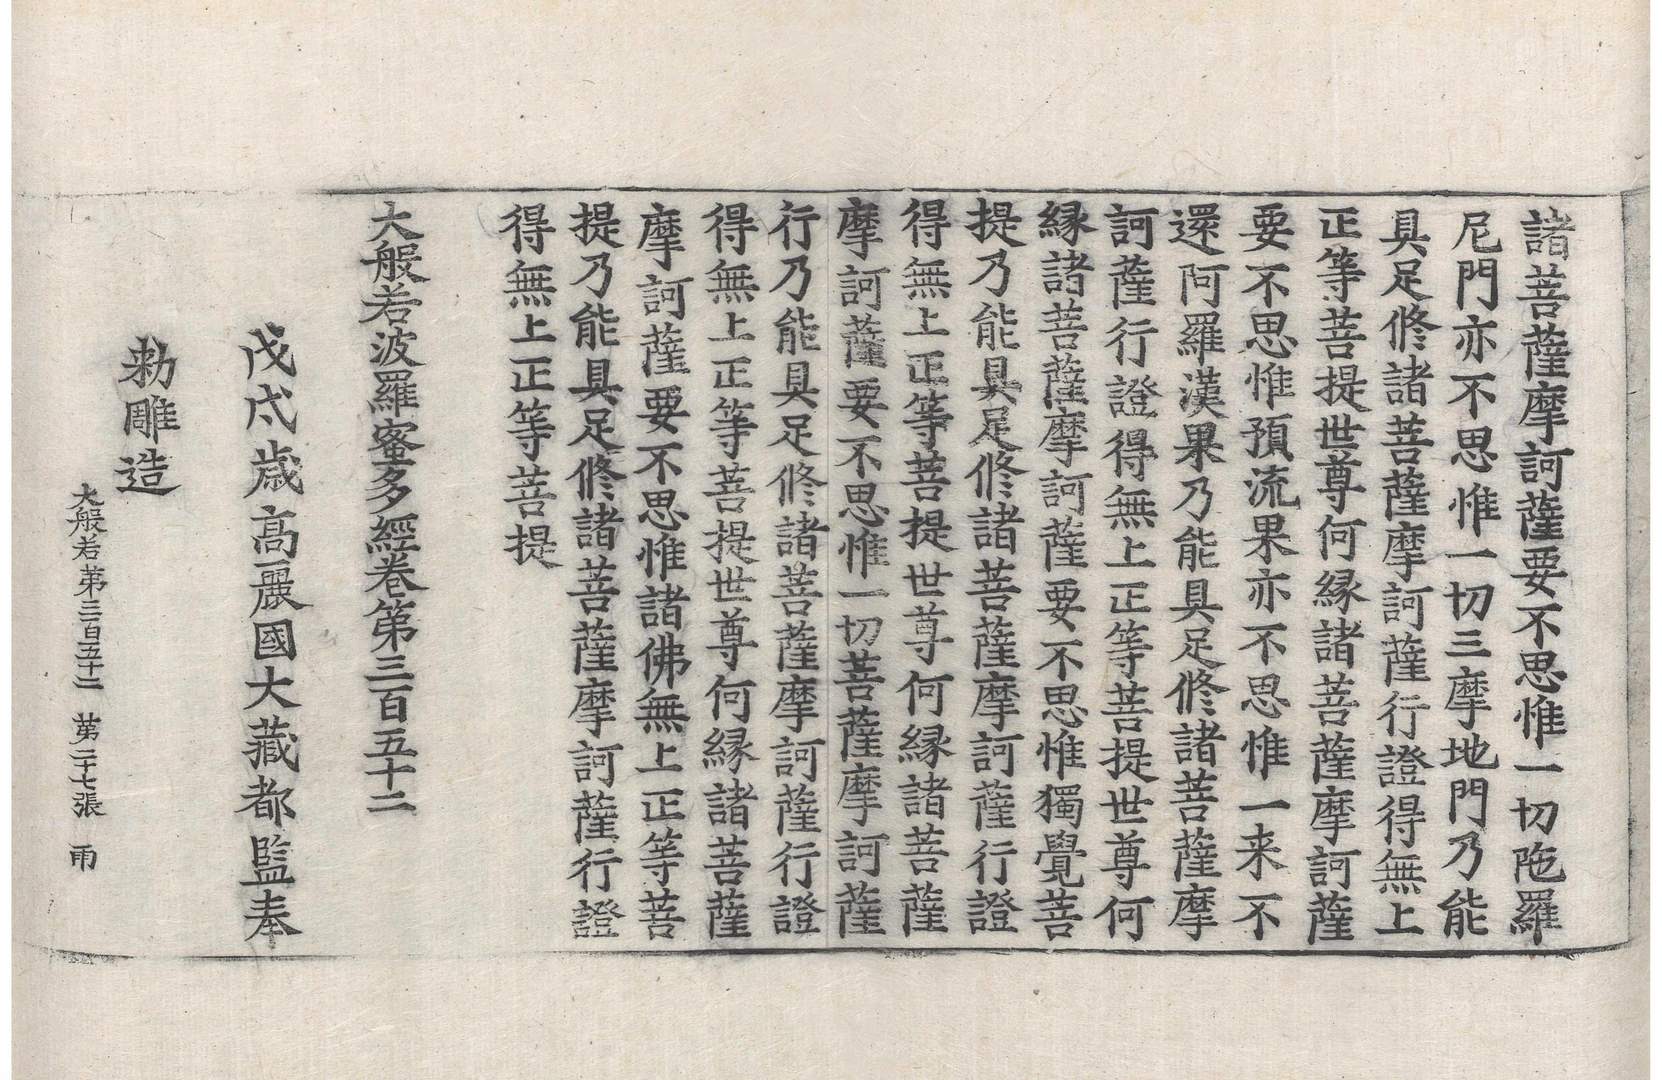 諸菩薩摩訶薩要不思惟一切陁羅
尼門亦不思惟一切三摩地門乃能
具足修諸菩薩摩訶薩行證得無上
正等菩提世尊何緣諸菩薩摩訶薩
要不思惟預流果亦不思惟一来不
還阿羅漢果乃能具足修諸菩薩摩
訶薩行證得無上正等菩提世尊何
緣諸菩薩摩訶薩要不思惟獨覺菩
提乃能具足修諸菩薩摩訶薩行證
得無上正等菩提世尊何緣諸菩薩
摩訶薩要不思惟一切菩薩摩訶薩
行乃能具足修諸菩薩摩訶薩行證
得無上正等菩提世尊何緣諸菩薩
摩訶薩要不思惟諸佛無上正等菩
提乃能具足修諸菩薩摩訶薩行證
得無上正等菩提
大般若波羅蜜多經卷第三百五十二
戊戌歲高麗國大藏都監奉
勅雕造
大般若第三百五十二 第二十七張 雨